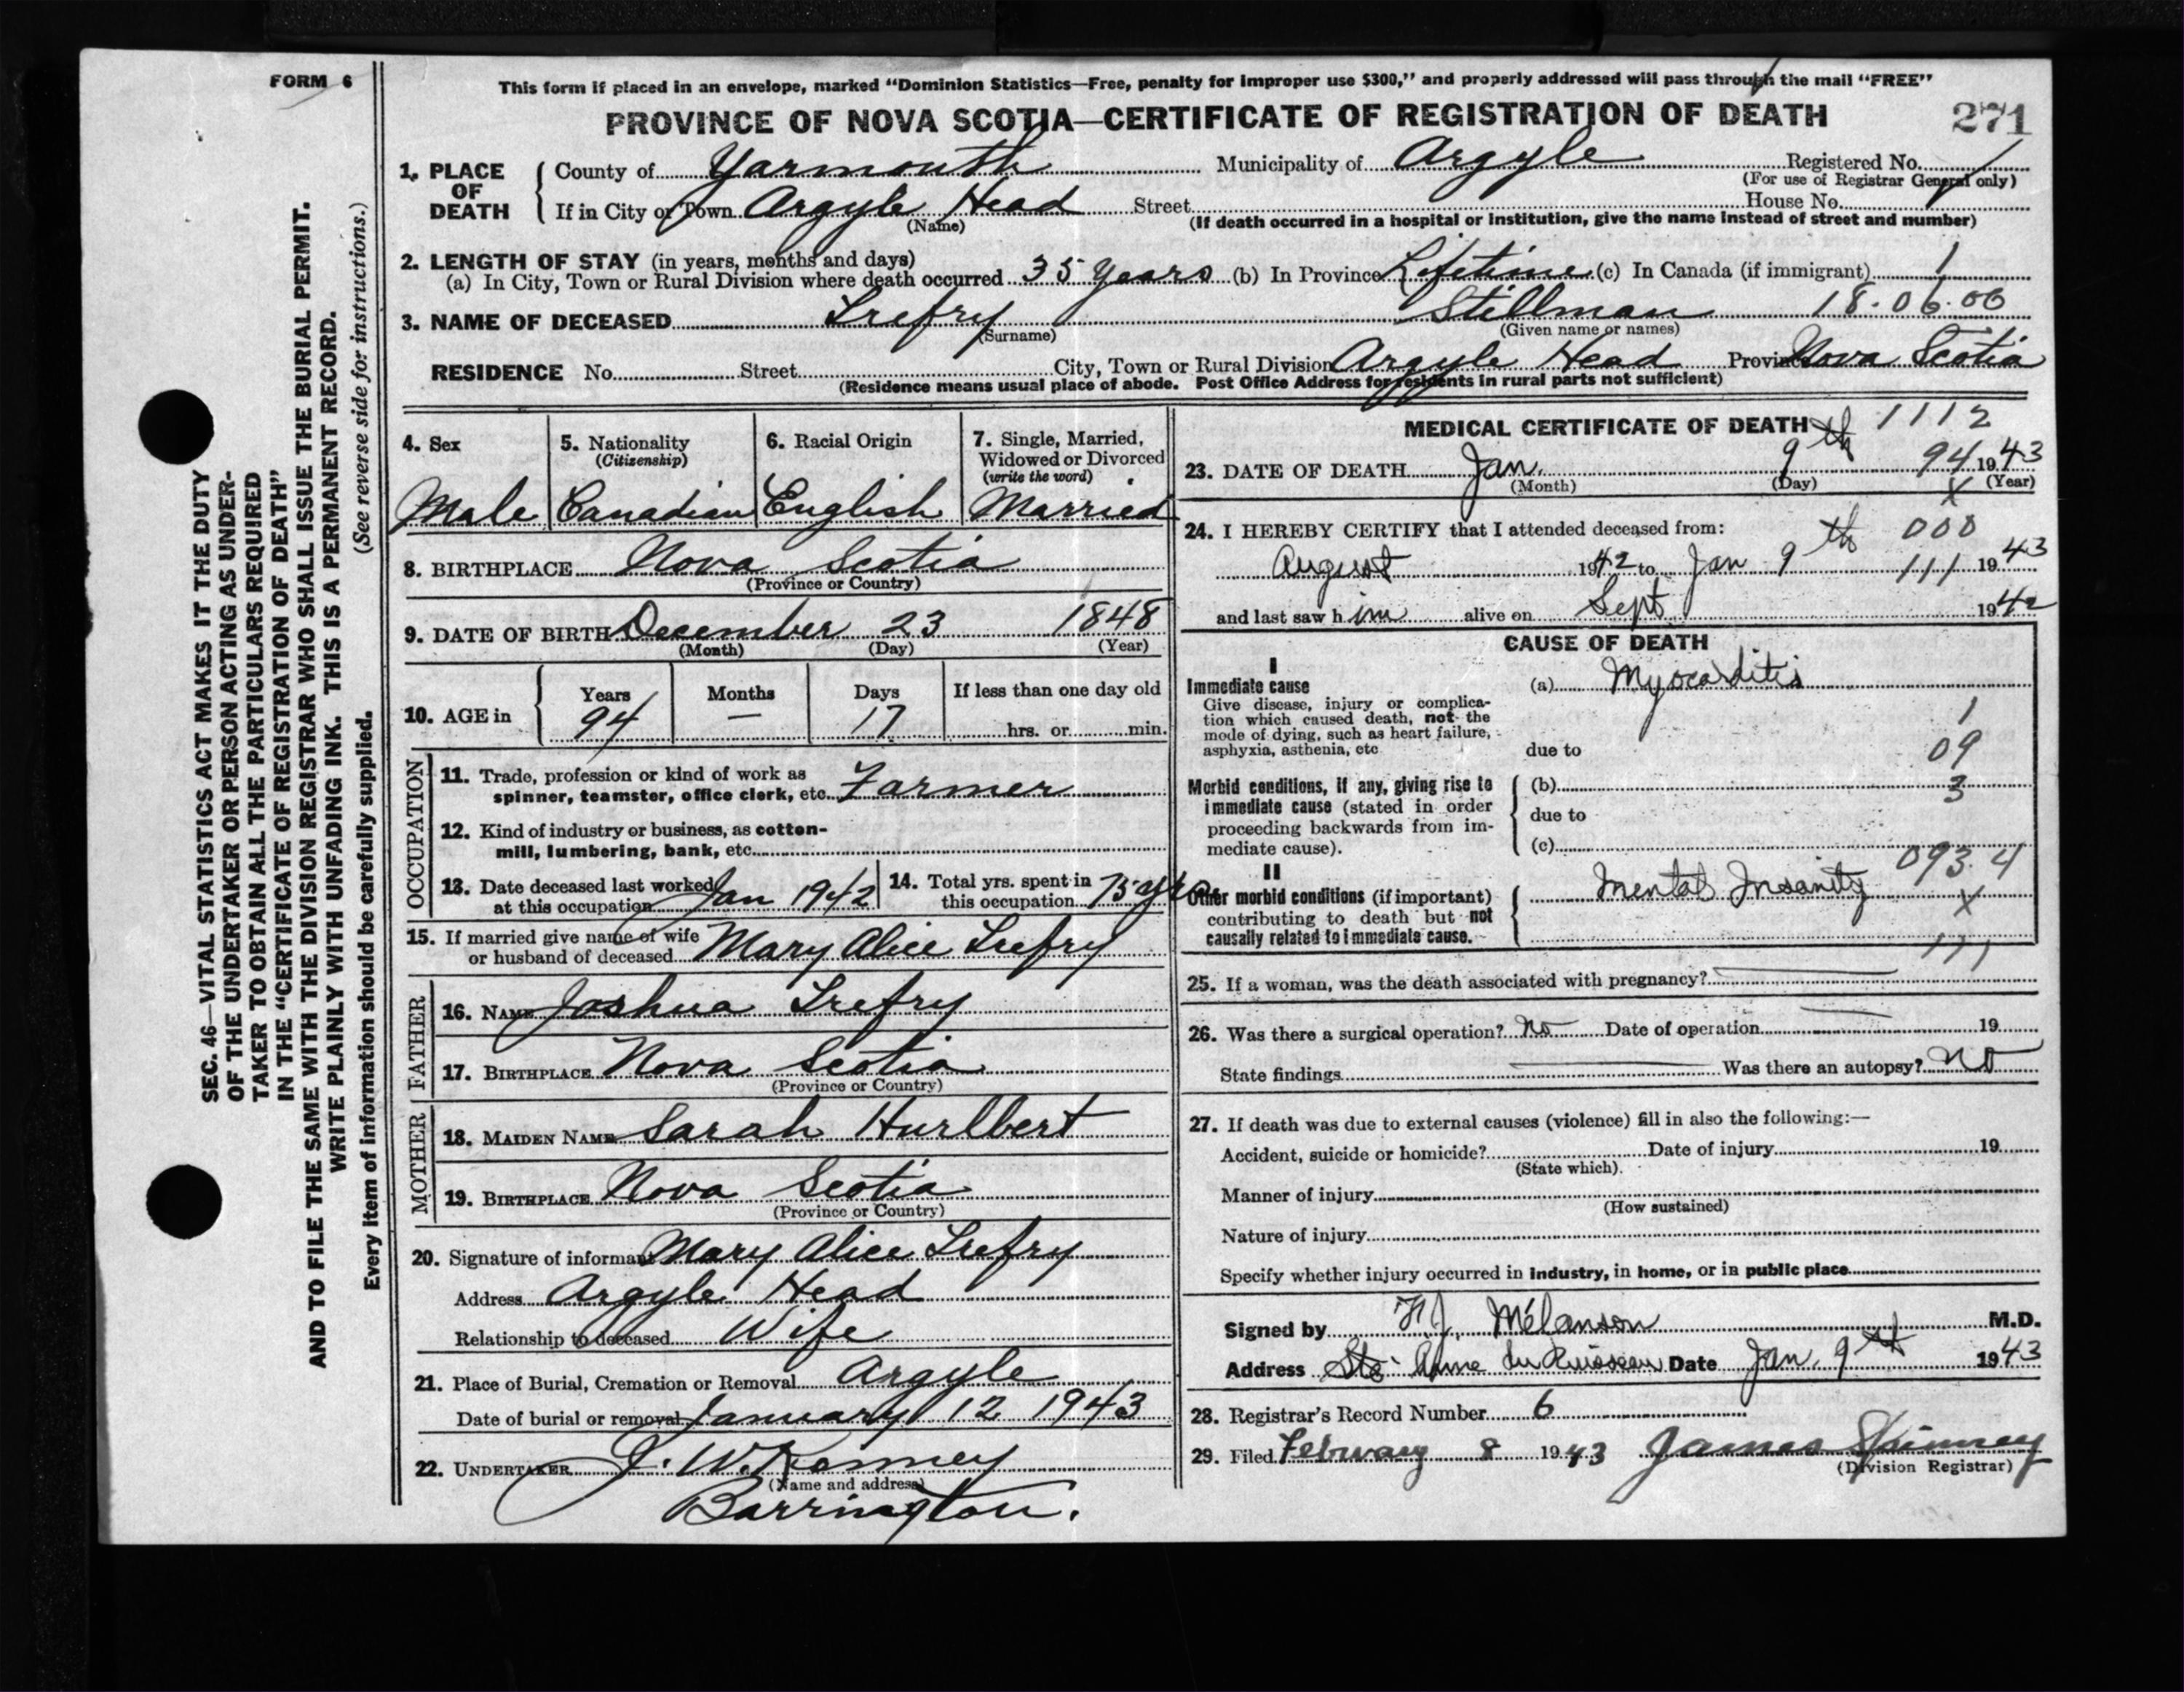 FORM 6
This form if placed in an envelope, marked "Dominion Statistics—Free, penalty for improper use $300," and properly addressed will pass through the mail "FREE"
PROVINCE OF NOVA SCOTIA—CERTIFICATE OF REGISTRATION OF DEATH
271
1. PLACE OF DEATH
County of Yarmouth Municipality of Argyle Registered No.
(For use of Registrar General only)
If in City or Town Argyle Head Street House No.
(Name) (If death occurred in a hospital or institution, give the name instead of street and number)
2. LENGTH OF STAY (in years, months and days)
(a) In City, Town or Rural Division where death occurred 35 Years (b) In Province Lifetime (c) In Canada (if immigrant) 1
3. NAME OF DECEASED Trefry Stillman 18.06.06
(Surname) (Given name or names)
RESIDENCE No. Street City, Town or Rural Division Argyle Head Province Nova Scotia
(Residence means usual place of abode. Post Office Address for residents in rural parts not sufficient)
4. Sex
Male
5. Nationality
(Citizenship)
Canadian
6. Racial Origin
English
7. Single, Married, Widowed or Divorced
(write the word)
Married
8. BIRTHPLACE Nova Scotia
(Province or Country)
9. DATE OF BIRTH December 23 1848
(Month) (Day) (Year)
10. AGE in
Years Months Days If less than one day old
94 — 17 hrs. or min.
OCCUPATION
11. Trade, profession or kind of work as
spinner, teamster, office clerk, etc. Farmer
12. Kind of industry or business, as cotton-
mill, lumbering, bank, etc.
13. Date deceased last worked
at this occupation Jan 1942
14. Total yrs. spent in
this occupation 75 yrs
15. If married give name of wife
or husband of deceased Mary Alice Trefry
FATHER
16. NAME Joshua Trefry
17. BIRTHPLACE Nova Scotia
(Province or Country)
MOTHER
18. MAIDEN NAME Sarah Hurlbert
19. BIRTHPLACE Nova Scotia
(Province or Country)
20. Signature of informant Mary Alice Trefry
Address Argyle Head
Relationship to deceased Wife
21. Place of Burial, Cremation or Removal Argyle
Date of burial or removal January 12 1943
22. UNDERTAKER J. W. Kenney
(Name and address)
Barrington.
MEDICAL CERTIFICATE OF DEATH 1112
23. DATE OF DEATH Jan. 9th 94 1943
(Month) (Day) (Year)
X
24. I HEREBY CERTIFY that I attended deceased from: 000
August 1942 to Jan 9th 111 1943
and last saw him alive on Sept 1942
CAUSE OF DEATH
I
Immediate cause
Give disease, injury or complica-
tion which caused death, not the
mode of dying, such as heart failure,
asphyxia, asthenia, etc
(a) Myocarditis
1
due to 09
Morbid conditions, if any, giving rise to
immediate cause (stated in order
proceeding backwards from im-
mediate cause).
(b) 3
due to
(c)
093.4
II
Other morbid conditions (if important)
contributing to death but not
causally related to immediate cause.
Mental Insanity
X
111
25. If a woman, was the death associated with pregnancy?
26. Was there a surgical operation? No Date of operation 19
State findings Was there an autopsy? No
27. If death was due to external causes (violence) fill in also the following:—
Accident, suicide or homicide? Date of injury 19
(State which).
Manner of injury
(How sustained)
Nature of injury
Specify whether injury occurred in industry, in home, or in public place
Signed by Mélanson M.D.
Address Ste. Anne du Ruisseau Date Jan. 9th 1943
28. Registrar's Record Number 6
29. Filed February 8 1943 James Skinney
(Division Registrar)
SEC. 46—VITAL STATISTICS ACT MAKES IT THE DUTY
OF THE UNDERTAKER OR PERSON ACTING AS UNDER-
TAKER TO OBTAIN ALL THE PARTICULARS REQUIRED
IN THE "CERTIFICATE OF REGISTRATION OF DEATH"
AND TO FILE THE SAME WITH THE DIVISION REGISTRAR WHO SHALL ISSUE THE BURIAL PERMIT.
WRITE PLAINLY WITH UNFADING INK. THIS IS A PERMANENT RECORD.
(See reverse side for instructions.)
Every item of information should be carefully supplied.